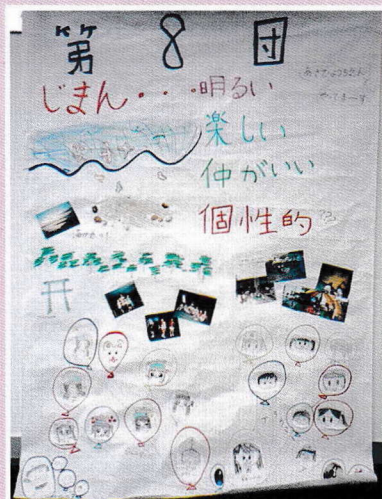 第8団
じまん・・・明るい
楽しい
仲がいい
個性的